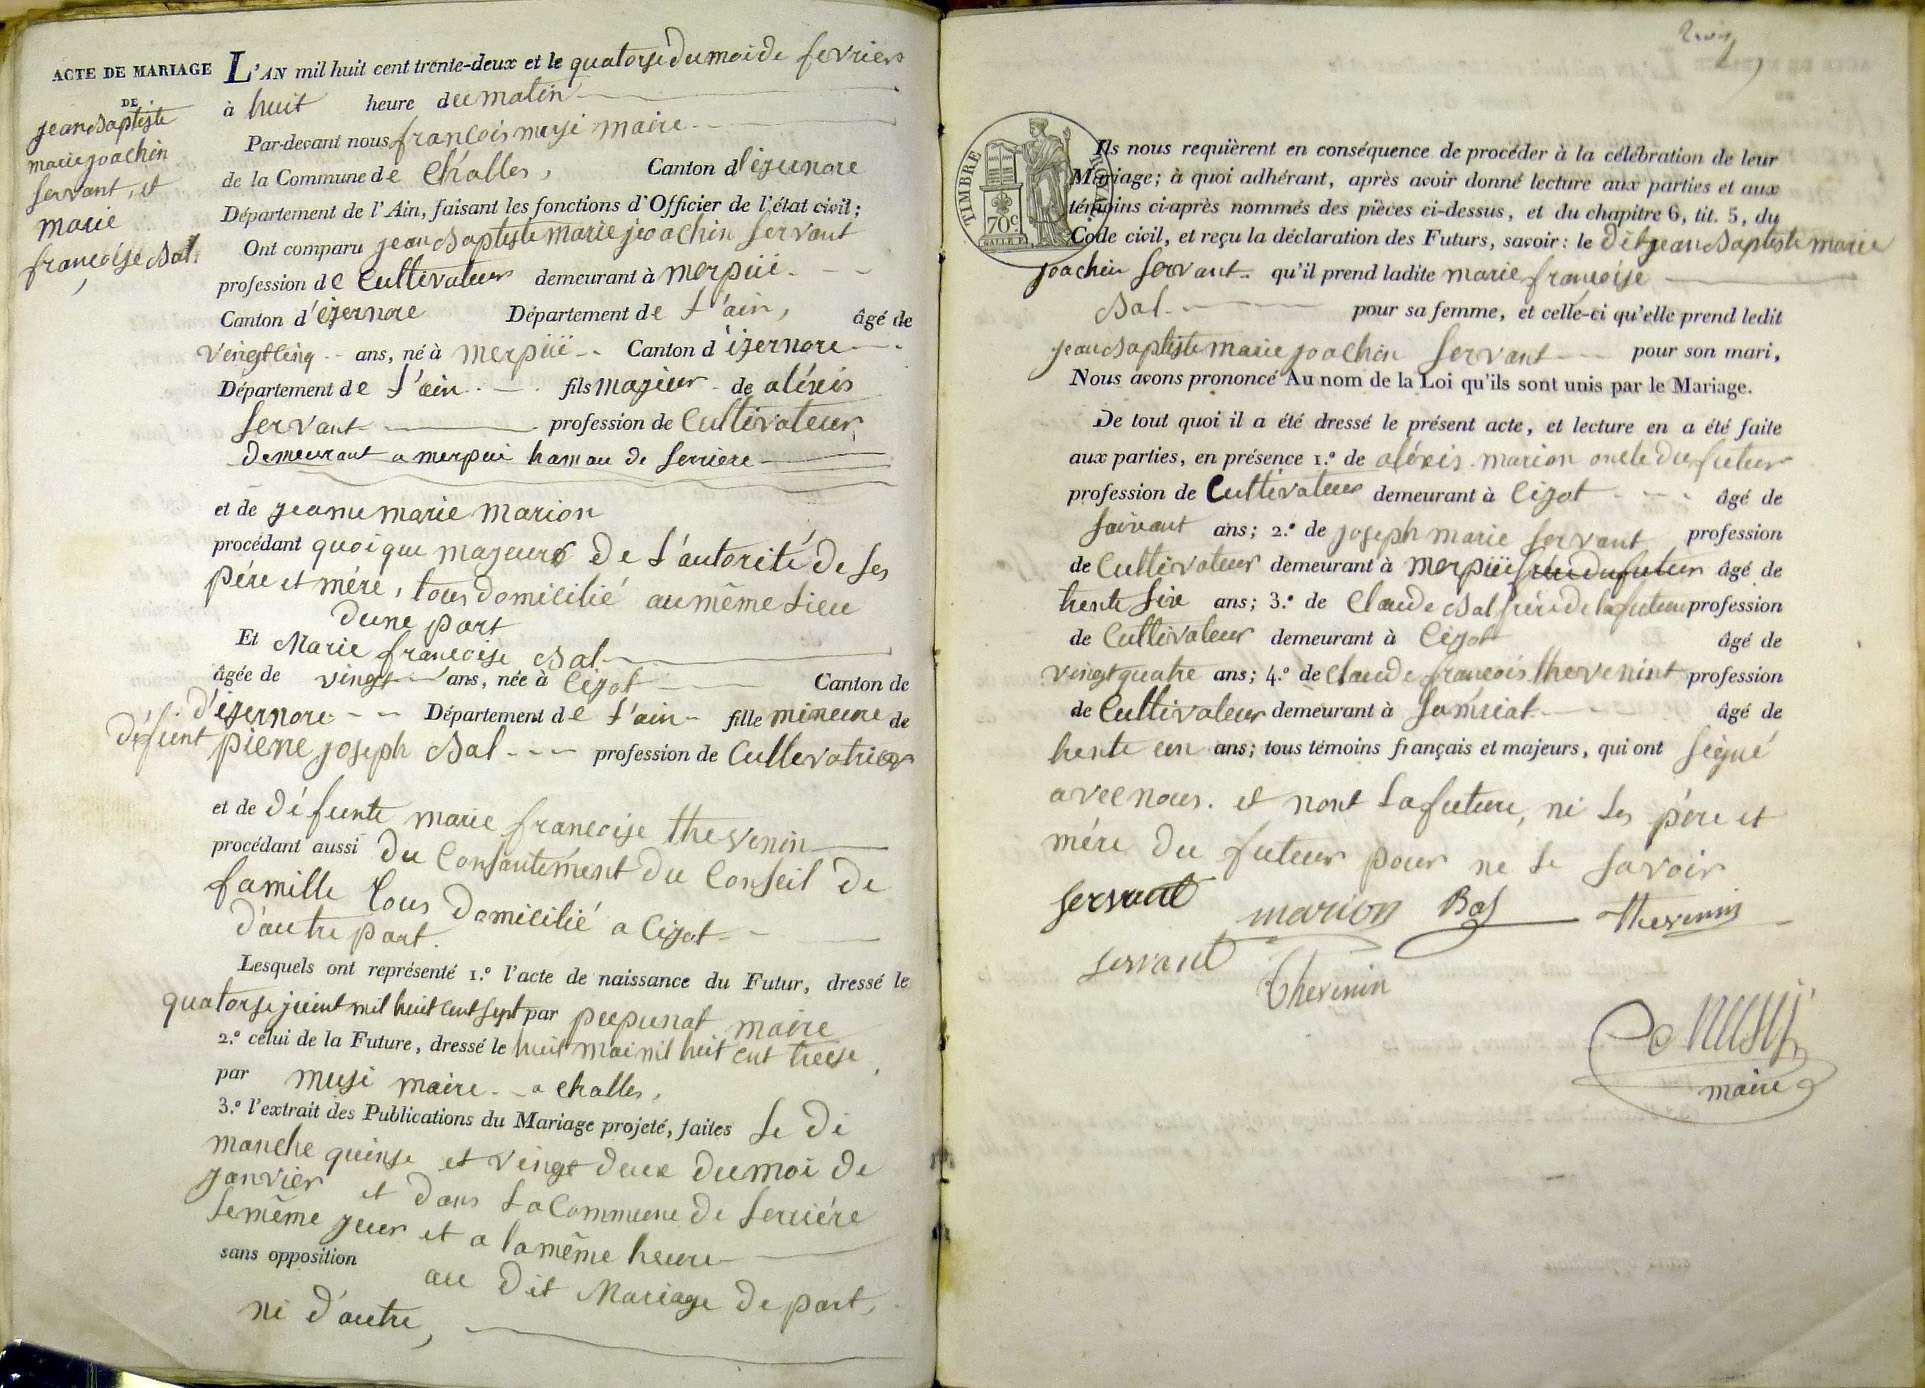 ACTE DE MARIAGE
DE
jean Baptiste
marie joachin
servant, et
marie
françoise Bal
L'AN mil huit cent trente-deux et le quatorse du moi de fevrier
à huit heure du matin
Par-devant nous françois musi maire
de la Commune de Challes, Canton d'izernore
Département de l'Ain, faisant les fonctions d'Officier de l'état civil;
Ont comparu jean Baptiste marie joachin servant
profession de Cultivateur demeurant à merpüi
Canton d'izernore Département de L'ain, âgé de
vingtcinq ans, né à merpüi Canton d'izernore
Département de L'ain fils majeur de aléxis
servant profession de Cultivateur
demeurant a merpui hamau de serriere
et de jeane marie marion
procédant quoique majeur de L'autorité de ses
pére et mére, tous domicilié au même Lieu
dune part
Et Marie françoise Bal
âgée de vingt ans, née à Cizot Canton de
d'izernore Département de L'ain fille mineure de
défunt pierre joseph Bal profession de Cultivatrice
et de défunte marie françoise thevenin
procédant aussi du Consantement du Conseil de
famille tous domicilié a Cizot
d'autre part.
Lesquels ont représenté 1.º l'acte de naissance du Futur, dressé le
quatorse juint mil huit cent sept par pupunat maire
2.º celui de la Future, dressé le huit mai mil huit cent treise,
par musi maire a Challes,
3.º l'extrait des Publications du Mariage projeté, faites Le di
manche quinse et vingt deux du moi de
janvier et dans La Commune de serriére
Le même jour et a la même heure
sans opposition au dit Mariage de part,
ni d'autre,
TIMBRE ROYAL
70 c
Ils nous requièrent en conséquence de procéder à la célébration de leur
Mariage; à quoi adhérant, après avoir donné lecture aux parties et aux
témoins ci-après nommés des pièces ci-dessus, et du chapitre 6, tit. 5, du
Code civil, et reçu la déclaration des Futurs, savoir: le dit jean Baptiste marie
joachin servant qu'il prend ladite marie françoise
Bal pour sa femme, et celle-ci qu'elle prend ledit
jean Baptiste marie joachin servant pour son mari,
Nous avons prononcé Au nom de la Loi qu'ils sont unis par le Mariage.
De tout quoi il a été dressé le présent acte, et lecture en a été faite
aux parties, en présence 1.º de aléxis marion oncle du futur
profession de Cultivateur demeurant à Cizot âgé de
soixant ans; 2.º de joseph marie servant profession
de Cultivateur demeurant à merpüi frére du futur âgé de
trente six ans; 3.º de Claude Bal frére de la future profession
de Cultivateur demeurant à Cizot âgé de
vingt quatre ans; 4.º de Claude françois thevenint profession
de Cultivateur demeurant à samriat âgé de
trente un ans; tous témoins français et majeurs, qui ont signé
avec nous. et nont La future, ni Les pére et
mére du futeur pour ne Le savoir
servant marion Bal thevenin
servant Thevenin
musy
maire